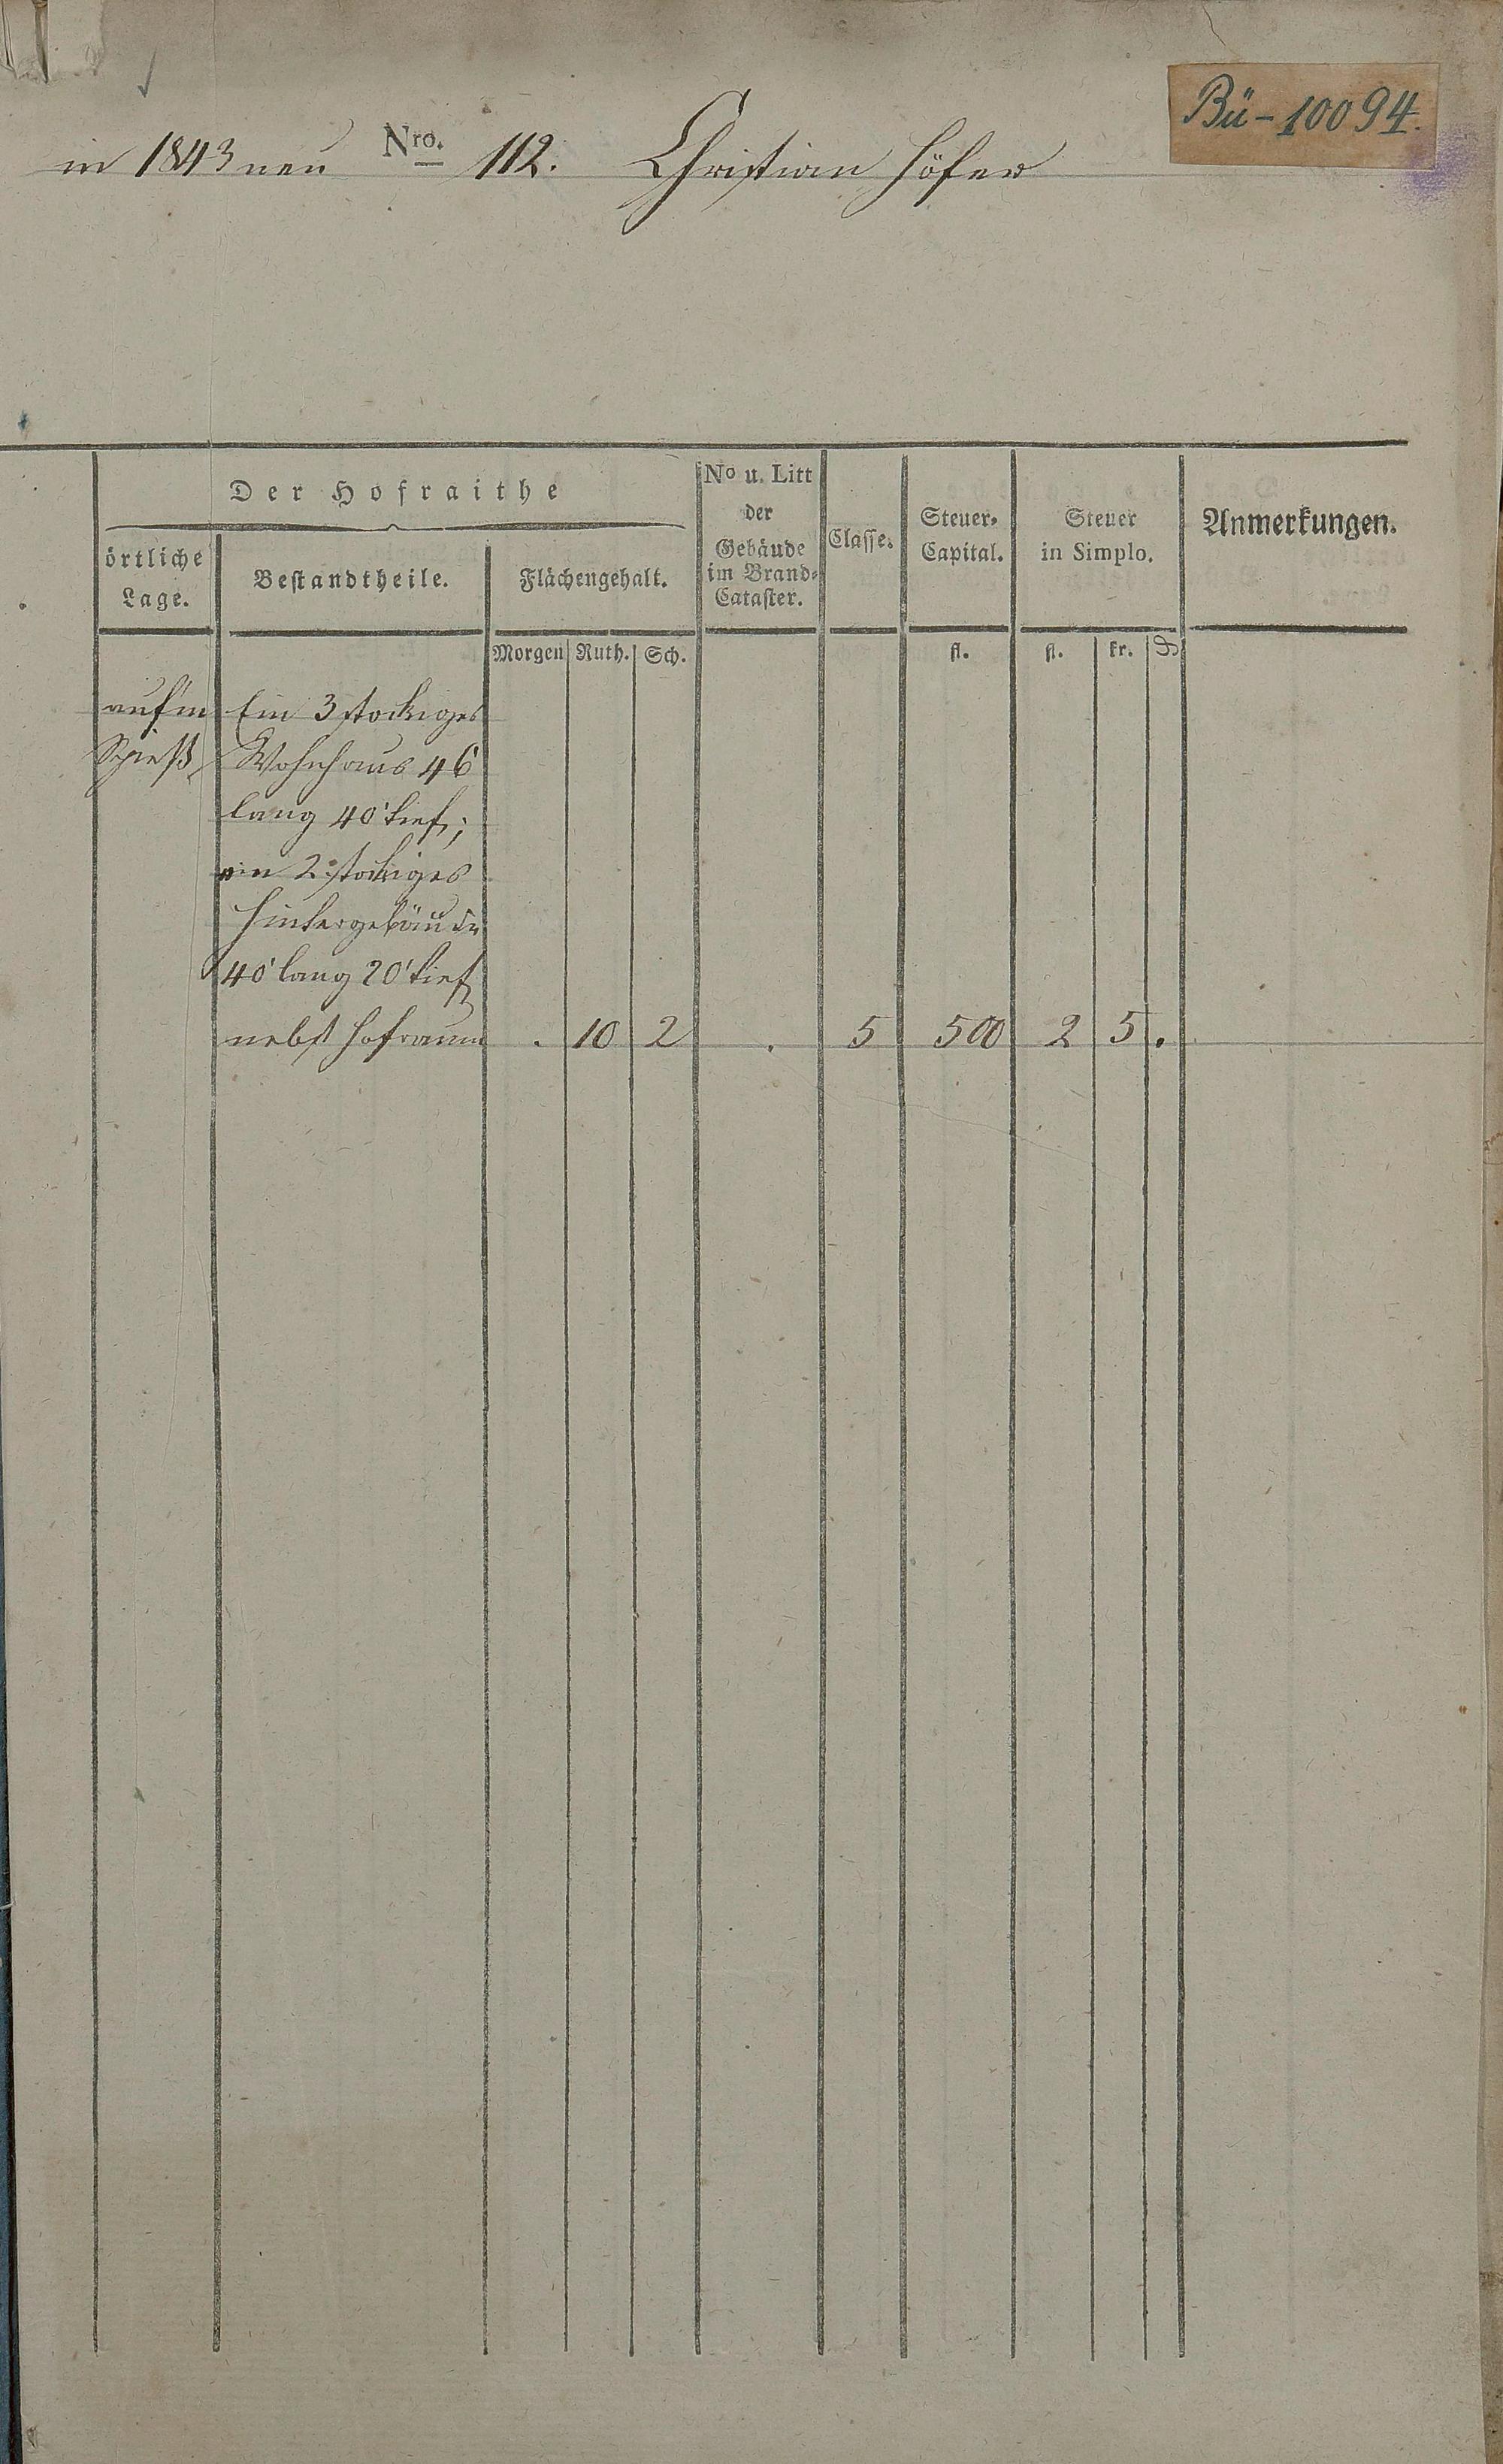 Bü-10094.
in 1843 neu Nro. 112. Christian Höfer
Der Hofraithe
örtliche
Lage.
Bestandtheile.
Flächengehalt.
No u. Litt
der
Gebäude
im Brand-
Cataster.
Classe.
Steuer-
Capital.
Steuer
in Simplo.
Anmerkungen.
Morgen Ruth. Sch. fl. fl. kr.
auf'm Ein 3 stockiges
Spieß Wohnhaus 46'
lang 40' tief;
ein 2 stockiges
Hintergebäude
40' lang 20' tief
nebst Hofraum . 10 2 . 5 500 2 5 .